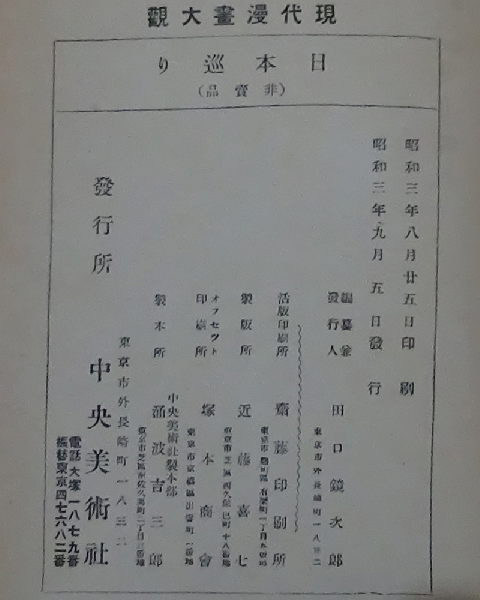 現代漫畫大觀
日本巡り
(非賣品)
昭和三年八月廿五日印刷
昭和三年九月五日發行
編纂兼
發行人
田口鏡次郎
東京市外長崎町一八三二
活版印刷所
齋藤印刷所
製版所
近藤喜七
オフセツト
印刷所
塚本商會
製本所
中央美術社製本部
涌波吉三郎
發行所
東京市外長崎町一八三二
中央美術社
電話大塚一八七九番
振替東京四七六八二番